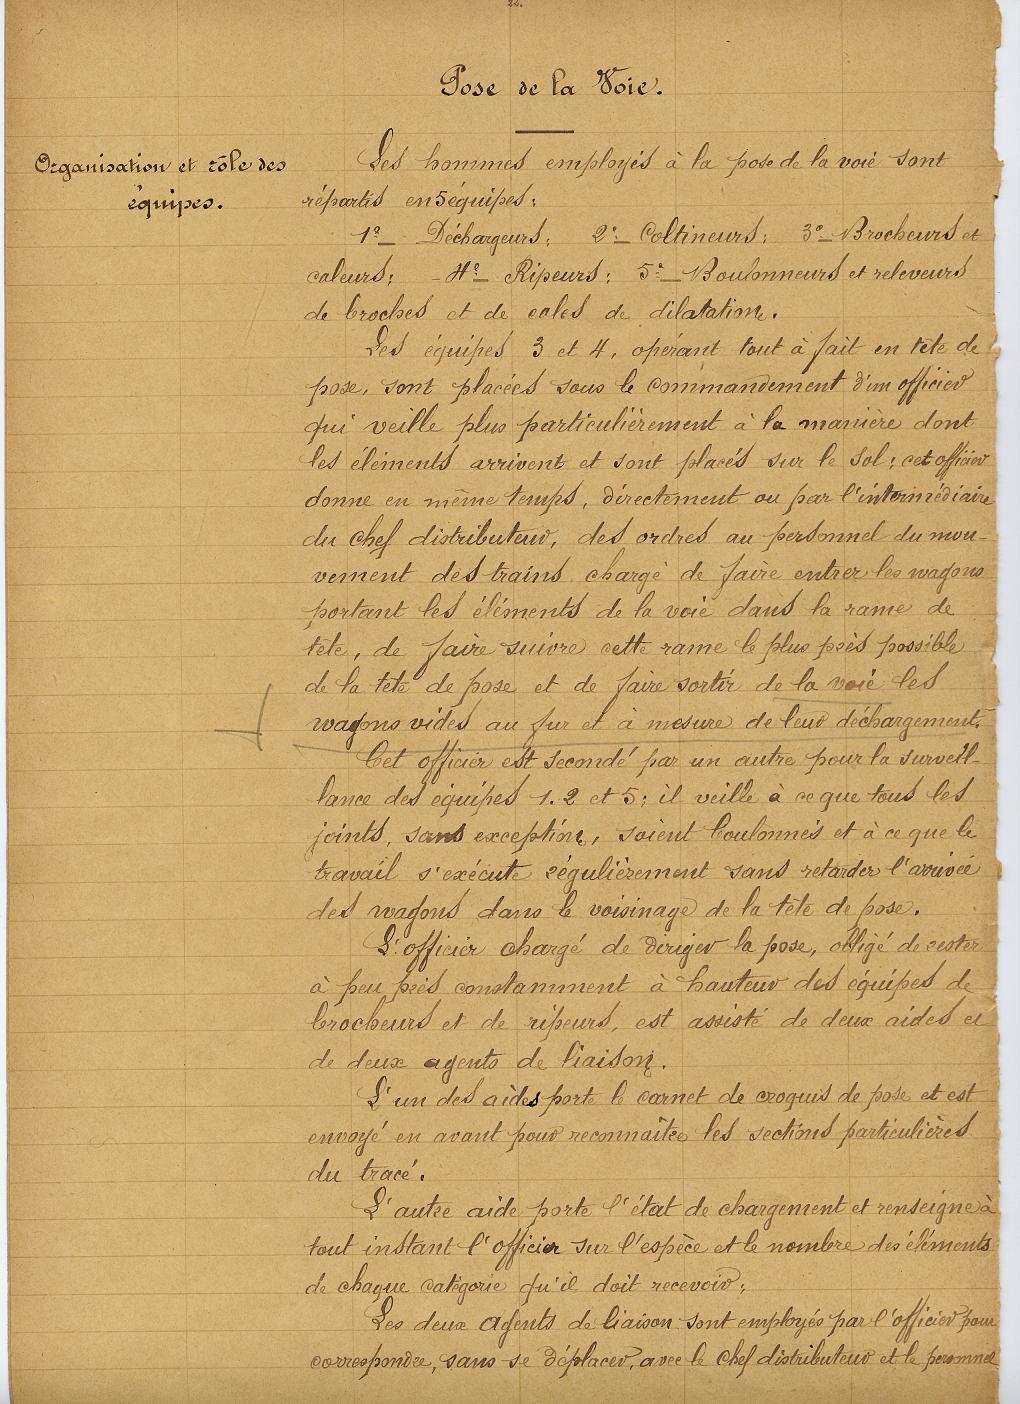 22.
Pose de la Voie.
Organisation et rôle des
équipes.
Les hommes employés à la pose de la voie sont
répartis en 5 équipes;
1º_ Déchargeurs; 2º_ Coltineurs; 3º_ Brocheurs et
caleurs; _4º_ Ripeurs; 5º_ Boulonneurs et releveurs
de broches et de cales de dilatation.
Les équipes 3 et 4, opérant tout à fait en tête de
pose, sont placées sous le commandement d'un officier
qui veille plus particulièrement à la manière dont
les éléments arrivent et sont placés sur le sol; cet officier
donne en même temps, directement ou par l'intermédiaire
du chef distributeur, des ordres au personnel du mou-
vement des trains chargé de faire entrer les wagons
portant les éléments de la voie dans la rame de
tête, de faire suivre cette rame le plus près possible
de la tête de pose et de faire sortir de la voie les
wagons vides au fur et à mesure de leur déchargement.
Cet officier est secondé par un autre pour la surveil-
lance des équipes 1. 2 et 5; il veille à ce que tous les
joints, sans exception, soient boulonnés et à ce que le
travail s'exécute régulièrement sans retarder l'arrivée
des wagons dans le voisinage de la tête de pose.
L'officier chargé de diriger la pose, obligé de rester
à peu près constamment à hauteur des équipes de
brocheurs et de ripeurs, est assisté de deux aides et
de deux agents de liaison.
L'un des aides porte le carnet de croquis de pose et est
envoyé en avant pour reconnaître les sections particulières
du tracé.
L'autre aide porte l'état de chargement et renseigne à
tout instant l'officier sur l'espèce et le nombre des éléments
de chaque catégorie qu'il doit recevoir;
Les deux agents de liaison sont employés par l'officier pour
correspondre, sans se déplacer, avec le chef distributeur et le personnel